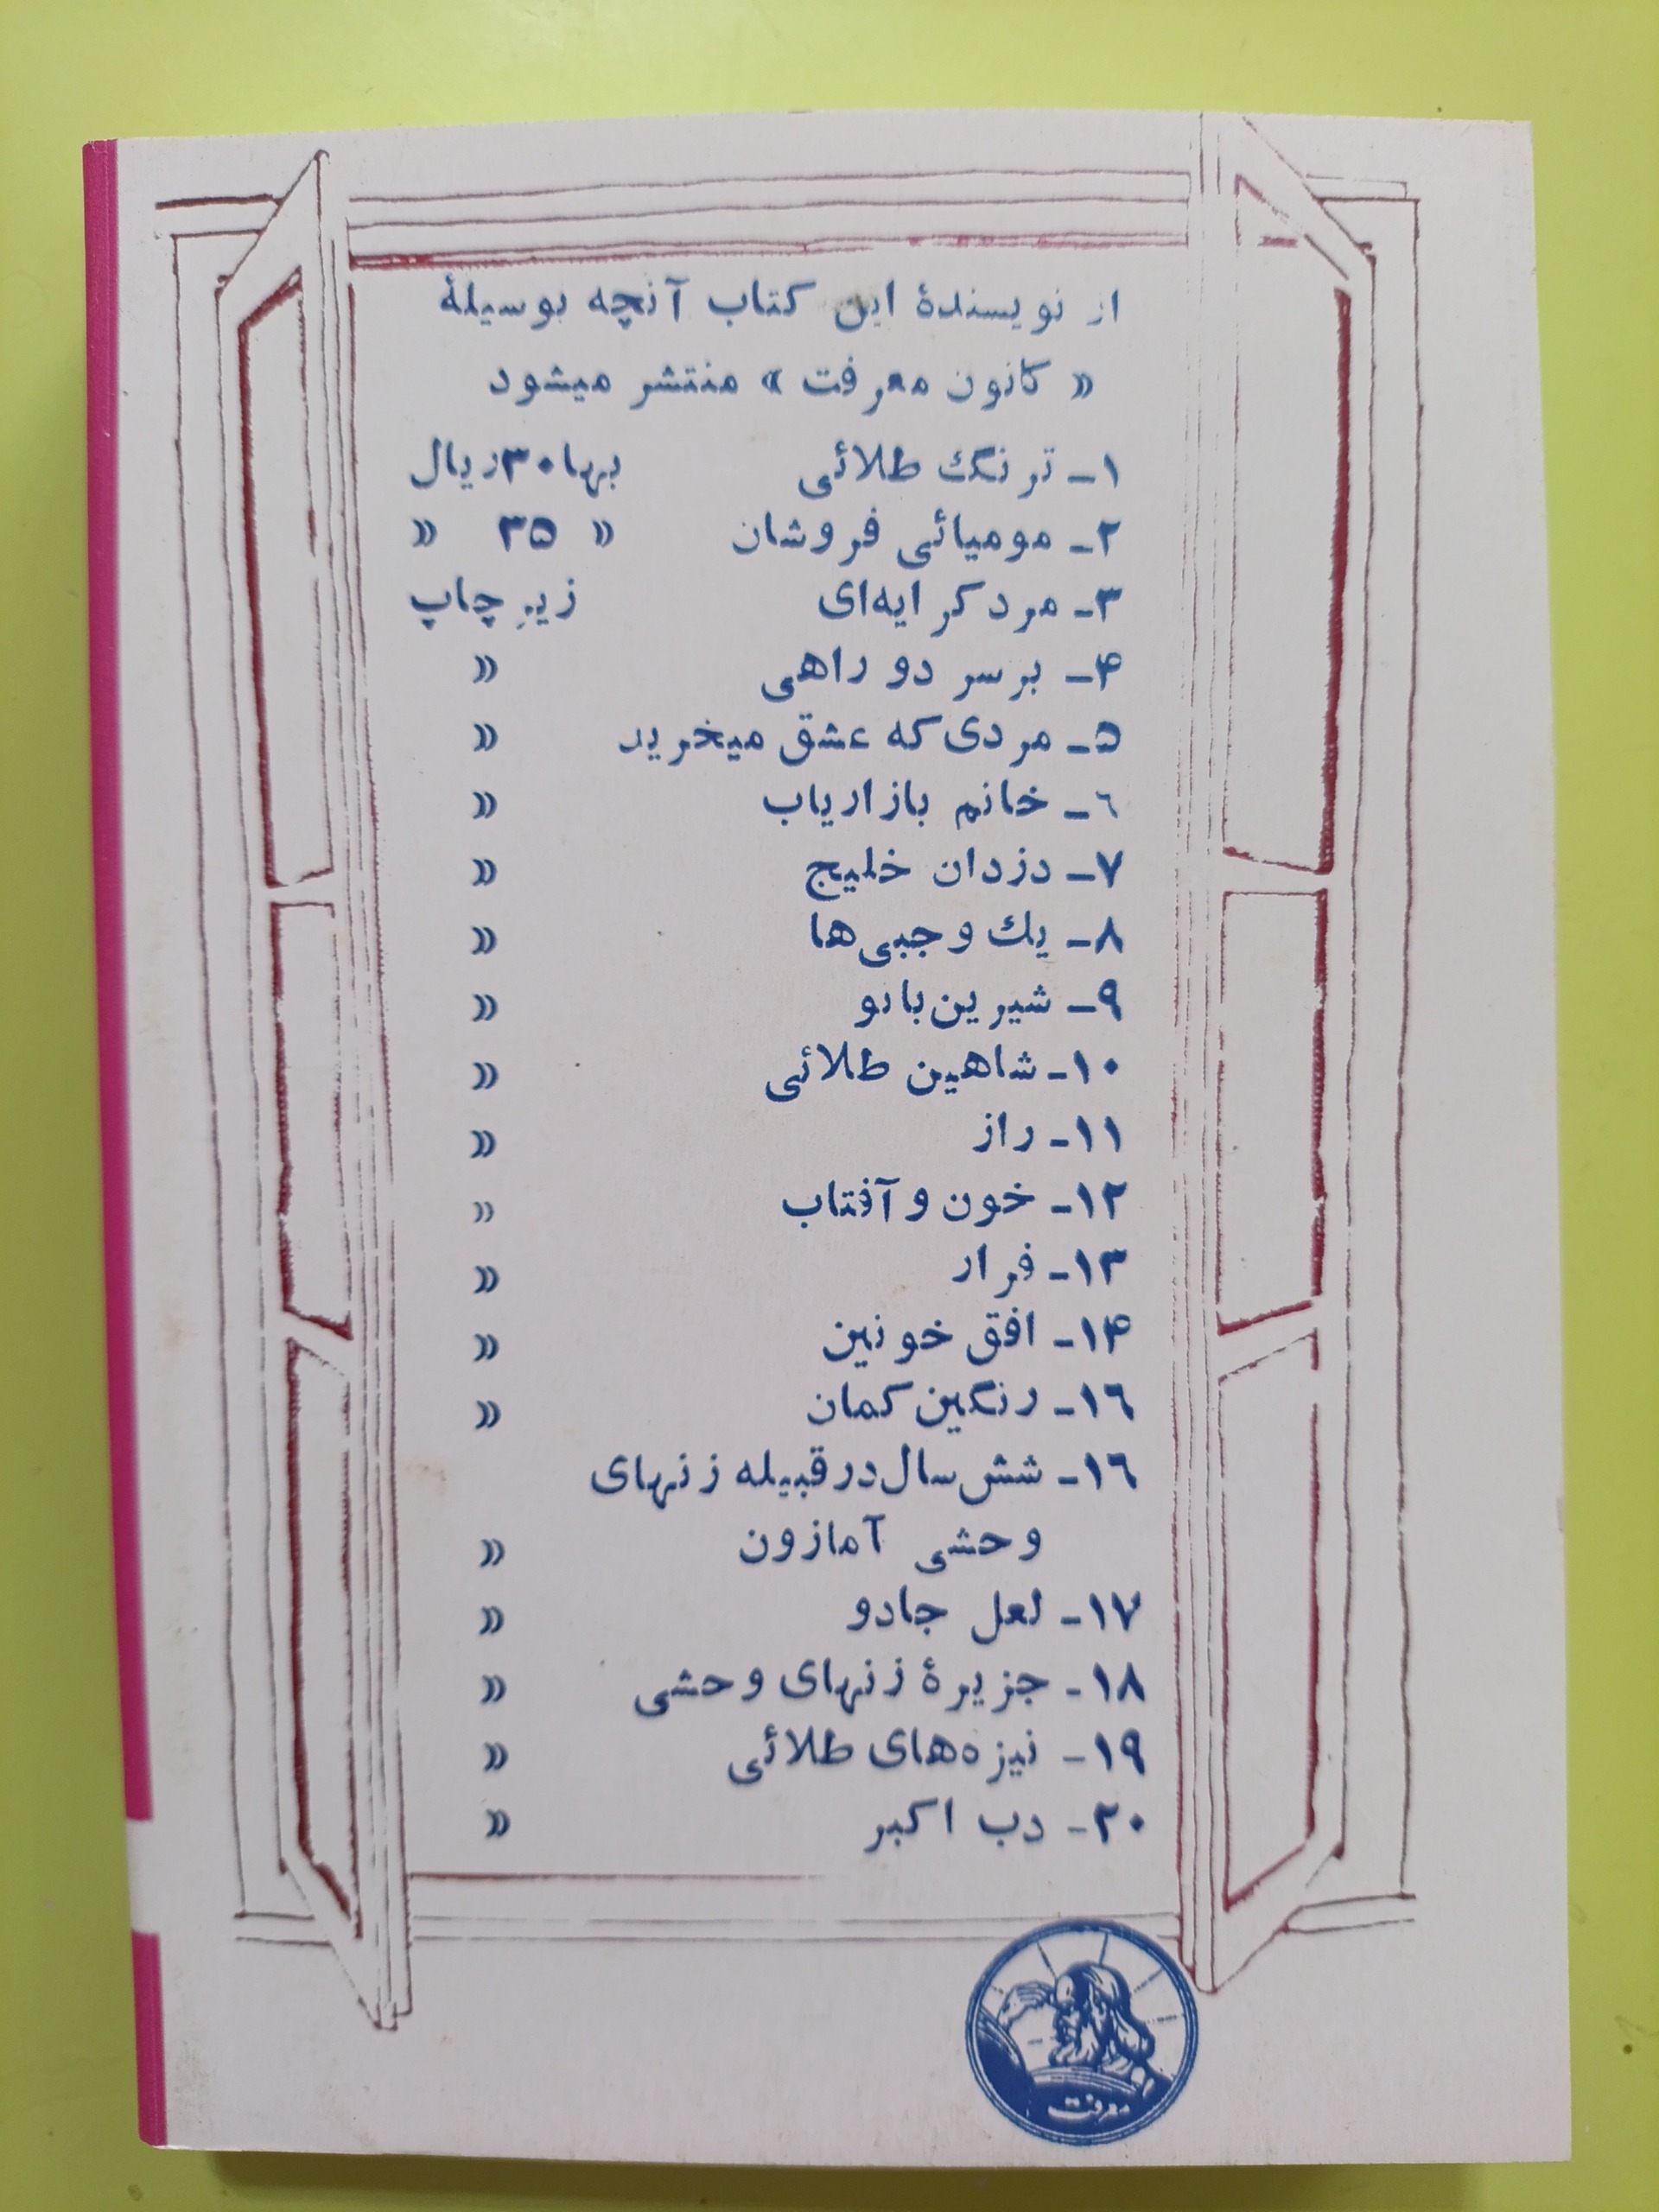 از نویسندهٔ این کتاب آنچه بوسیلهٔ
« کانون معرفت » منتشر میشود
۱ـ ترنگ طلائی بها ۳۰ ریال
۲ـ مومیائی فروشان » ۳۵ »
۳ـ مرد کرایه‌ای زیر چاپ
۴ـ بر سر دو راهی »
۵ـ مردی که عشق میخرید »
۶ـ خانم بازاریاب »
۷ـ دزدان خلیج »
۸ـ یك وجبی‌ها »
۹ـ شیرین‌بانو »
۱۰ـ شاهین طلائی »
۱۱ـ راز »
۱۲ـ خون و آفتاب »
۱۳ـ فرار »
۱۴ـ افق خونین »
۱۶ـ رنگین کمان »
۱۶ـ شش سال در قبیله زنهای
وحشی آمازون »
۱۷ـ لعل جادو »
۱۸ـ جزیرهٔ زنهای وحشی »
۱۹ـ نیزه‌های طلائی »
۲۰ـ دب اکبر »
معرفت